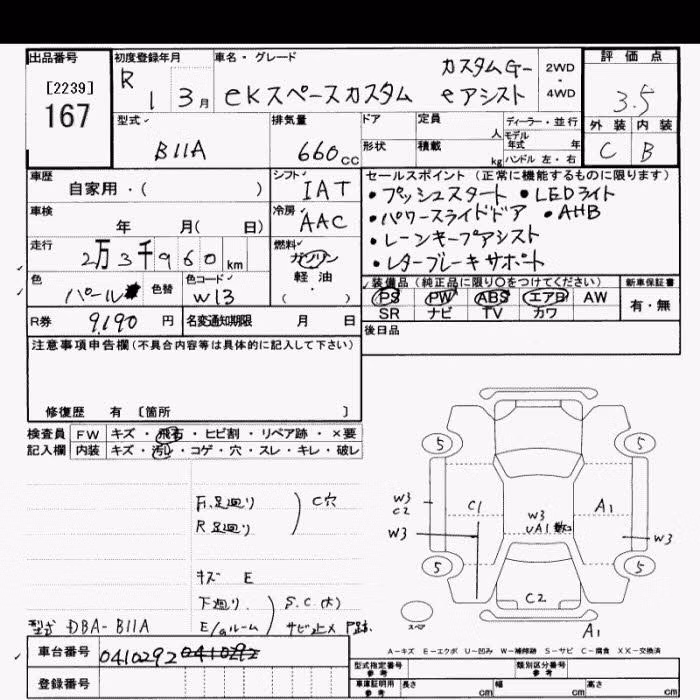 出品番号
[2239]
167
初度登録年月
R 1 3月
車名・グレード
カスタムG-
eKスペースカスタム eアシスト
2WD
・
4WD
評価点
3.5
外装 内装
C B
型式
B11A
排気量
660cc
ドア
定員 人
形状
積載 kg
ディーラー・並行
モデル年式 年
ハンドル 左・右
車歴
自家用・( )
シフト
IAT
車検
年 月( 日)
冷房
AAC
走行
2万3千960km
燃料
ガソリン
軽・油
( ・ )
色
パール
色替
色コード
W13
R券 9,190円
名変通知期限 月 日
セールスポイント (正常に機能するものに限ります)
・プッシュスタート ・LEDライト
・パワースライドドア ・AHB
・レーンキープアシスト
・レターブレーキサポート
装備品 (純正品に限り〇をつけてください)
PS PW ABS エアB AW
SR ナビ TV カワ
新車保証書
有・無
後日品
注意事項申告欄(不具合内容等は具体的に記入して下さい)
修復歴 有 [箇所 ]
検査員記入欄
FW キズ・飛石・ヒビ割・リペア跡・×要
内装 キズ・汚れ・コゲ・穴・スレ・キレ・破レ
F.足廻り
R 足廻り
C穴
キズ E
下廻り
E/gルーム
S.C(大)
サビ止メ P跡
型式 DBA-B11A
5
5
5
5
W3
C2
W3
C1
W3
UA1
A1
W3
C2
A1
スペア
A-キズ E-エクボ U-凹み W-補修跡 S-サビ C-腐食 XX-交換済
車台番号
0410292 0410292
登録番号
型式指定番号
参考
類別区分番号
参考
車庫証明用
参考
長さ cm
幅 cm
高さ cm